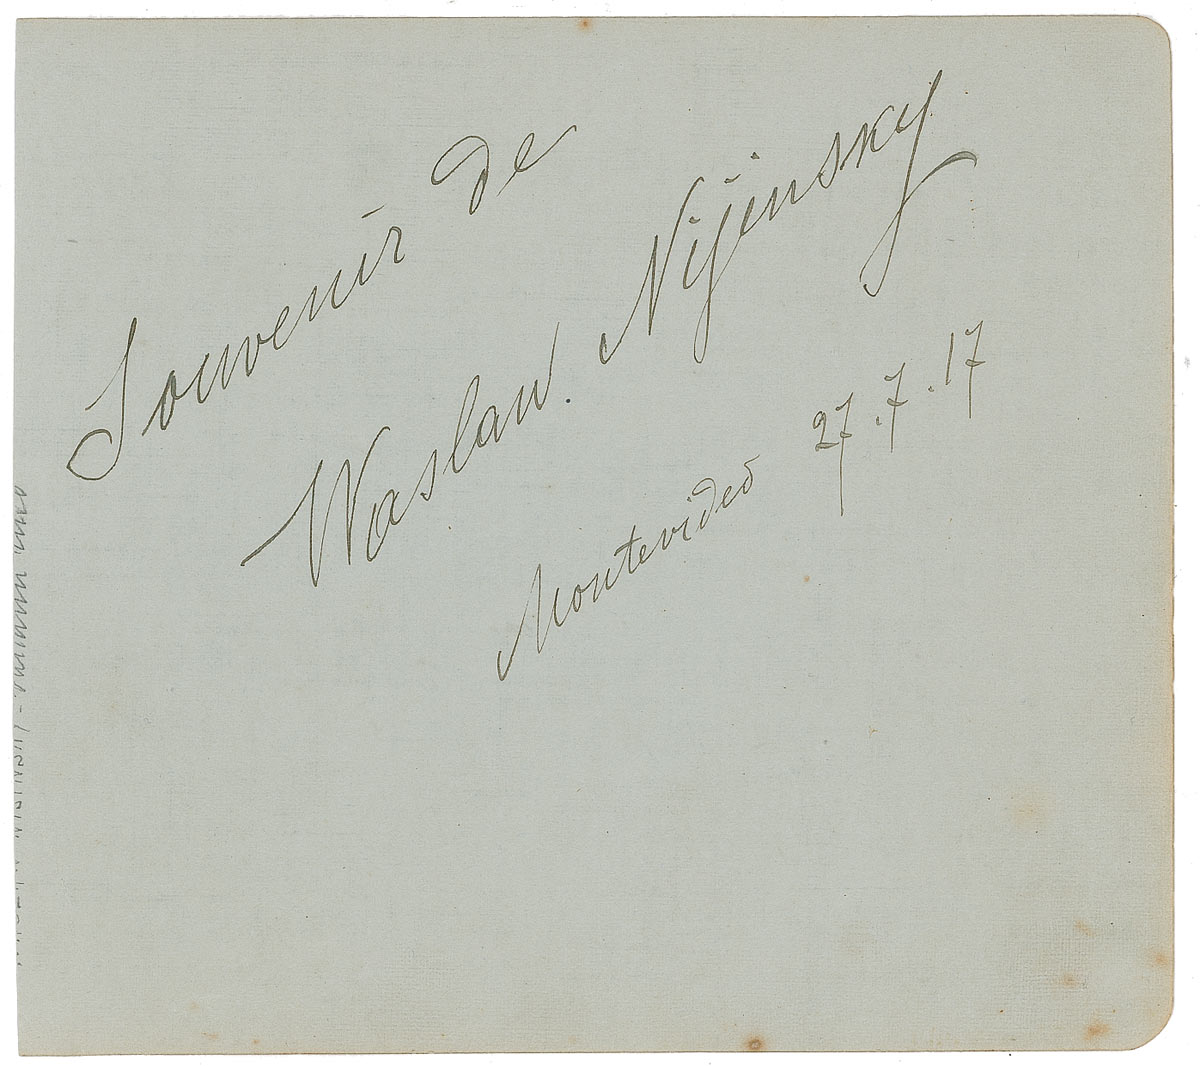 Souvenir de
Waslaw. Nijinsky
Montevideo 27.7.17